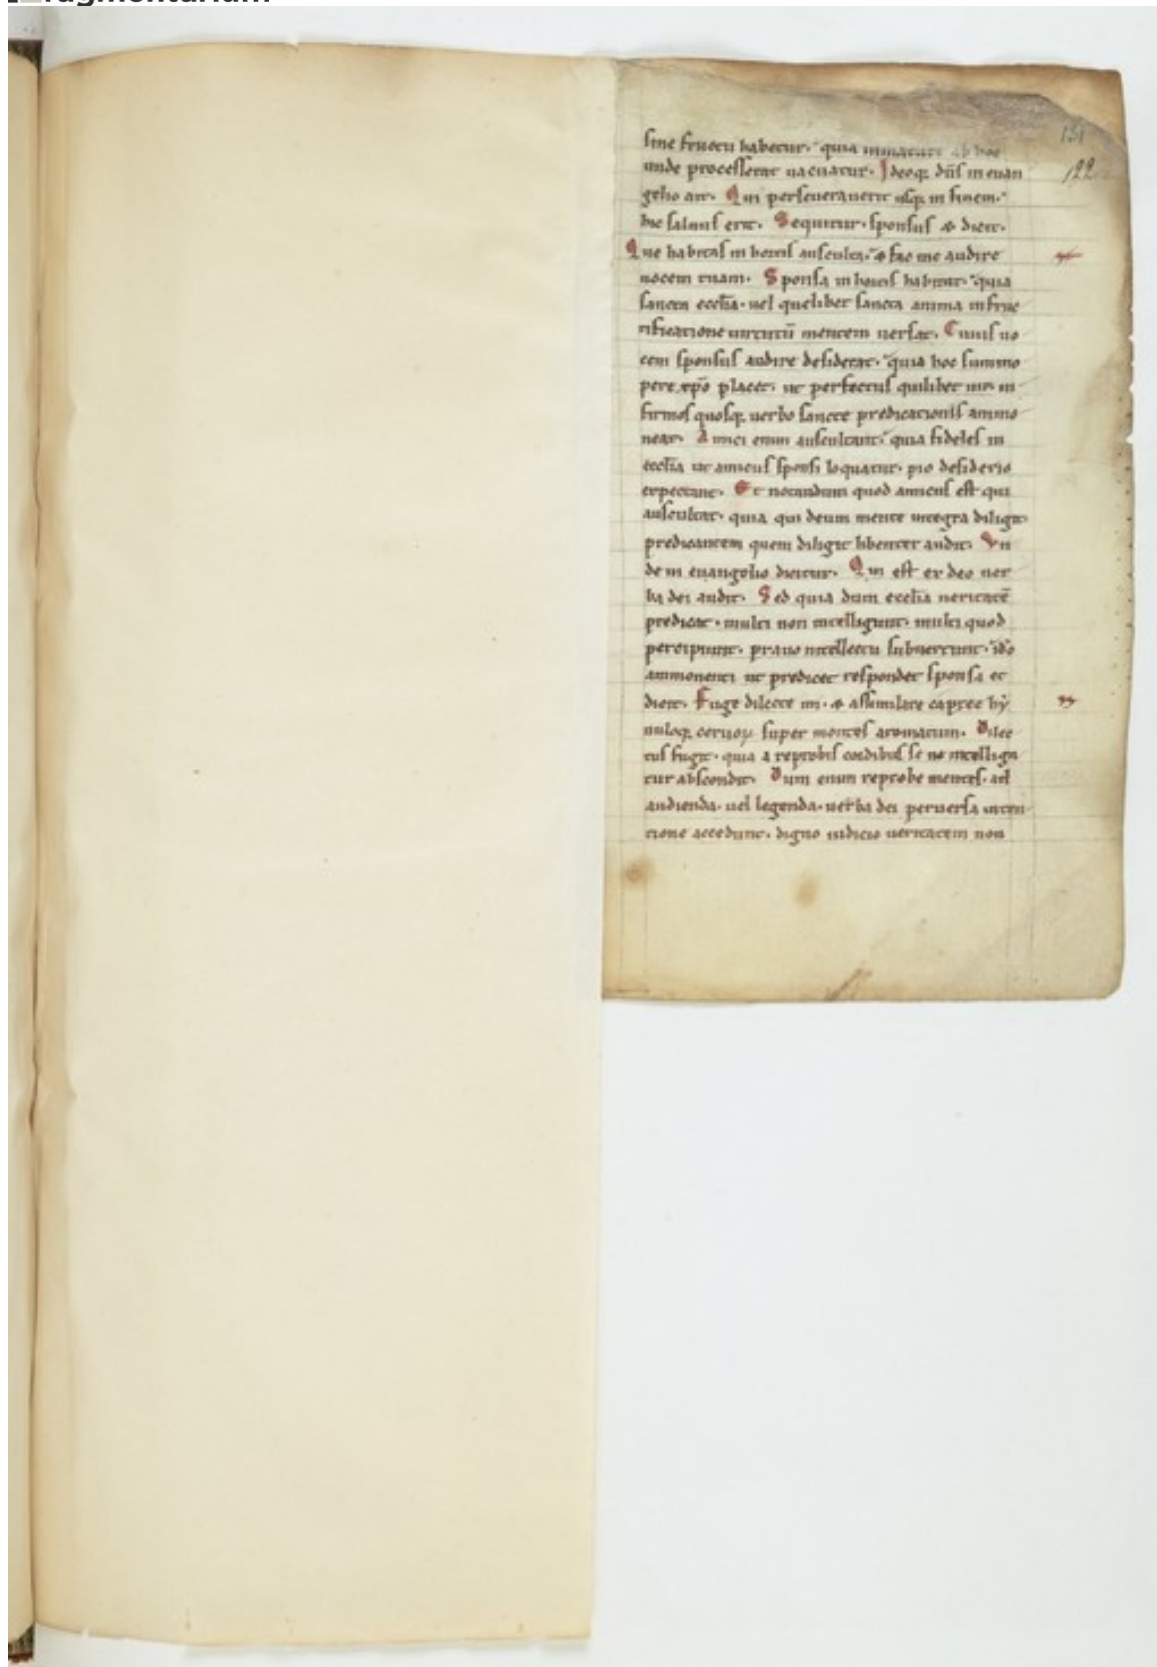 131
122
sine fructu habetur. quia inmature ab hoc
unde processerat uacuatur. Ideoq; dn̄s in euan
gelio ait. Qui perseuerauerit usq; in finem.
hic saluus erit. Sequitur. sponsus & dicit.
Que habitas in hortis ausculta. & fac me audire
uocem tuam. Sponsa in hortis habitat. quia
sancta eccl̄ia. uel quelibet sancta anima in fruc
tificatione uirtutū mentem uersat. Cuius uo
cem sponsus audire desiderat. quia hoc summo
pere xp̄o placet. ut perfectus quilibet in
firmos quosq; uerbo sancte predicationis ammo
neat. Amici enim auscultant. quia fideles in
eccl̄ia ut amicus sponsi loquatur. pio desiderio
expectant. Et notandum quod amicus est qui
auscultat. quia qui deum mente integra diligit
predicantem quem diligit libenter audit. Vn
de in euangelio dicitur. Qui est ex deo uer
ba dei audit. Sed quia dum eccl̄ia ueritatē
predicat. multi non intelligunt. multi quod
percipiunt. prauo intellectu subuertunt. idō
ammonenti ut predicet respondet sponsa et
dicit. Fuge dilecte mi. & assimilare capree hy
nuloq; ceruoꝝ super montes aromatum. Dilec
tus fugit. quia a reprobis cordibus se ne intelliga
tur abscondit. Dum enim reprobe mentes. ad
audienda. uel legenda. uerba dei peruersa inten
tione accedunt. digno iudicio ueritatem non